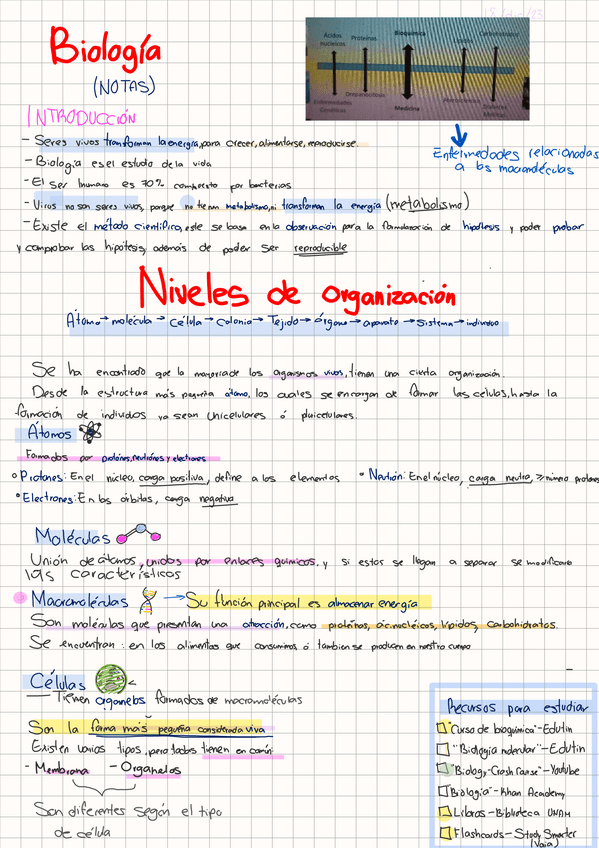 Biología
(NOTAS)
Ácidos nucleicos
Proteínas
Bioquímica
Lípidos
Carbohidratos
Enfermedades Genéticas
Medicina
Diabetes Mellitus
Enfermedades relacionadas
a las macromoléculas
INTRODUCCIÓN
- Seres vivos transforman la energía, para crecer, alimentarse, reproducirse.
- Biología es el estudio de la vida
- El ser humano es 70% compuesto por bacterias
- Virus no son seres vivos, porque no tienen metabolismo, ni transforman la energía (metabolismo)
- Existe el método científico, este se basa en la observación para la formulación de hipótesis y poder probar
y comprobar las hipótesis, además de poder ser reproducible
Niveles de organización
Átomo → molécula → célula → colonia → Tejido → órgano → aparato → sistema → individuo
Se ha encontrado que la mayoria de los organismos vivos, tienen una cierta organización.
Desde la estructura más pequeña átomo, los cuales se encargan de formar las celulas, hasta la
formación de individuos ya sean unicelulares ó pluricelulares.
Átomos
Formados por protones, neutrones y electrones
• Protones: En el núcleo, carga positiva, define a los elementos
• Neutrón: En el núcleo, carga neutra, ≥ número protones
• Electrones: En las órbitas, carga negativa
Moléculas
Unión de átomos, unidos por enlaces químicos, y si estos se llegan a separar se modificara
las característicos
Macromoléculas → Su función principal es almacenar energía
Son moléculas que presentan una atracción, como proteínas, ác. nucléicos, lípidos, carbohidratos.
Se encuentran: en los alimentos que consumimos ó tambien se producen en nuestro cuerpo
Células
Tienen organelos formados de macromoléculas
Son la forma más pequeña considerada viva
Existen varios tipos, pero todos tienen en común:
- Membrana - Organelos
Son diferentes según el tipo
de célula
Recursos para estudiar
"Curso de bioquímica" - Edutin
"Biología molecular" - Edutin
"Biology - Crash Course" - Youtube
"Biología" - Khan Academy
Libros - Biblioteca UNAM
Flashcards - Study Smarter
(Vaia)